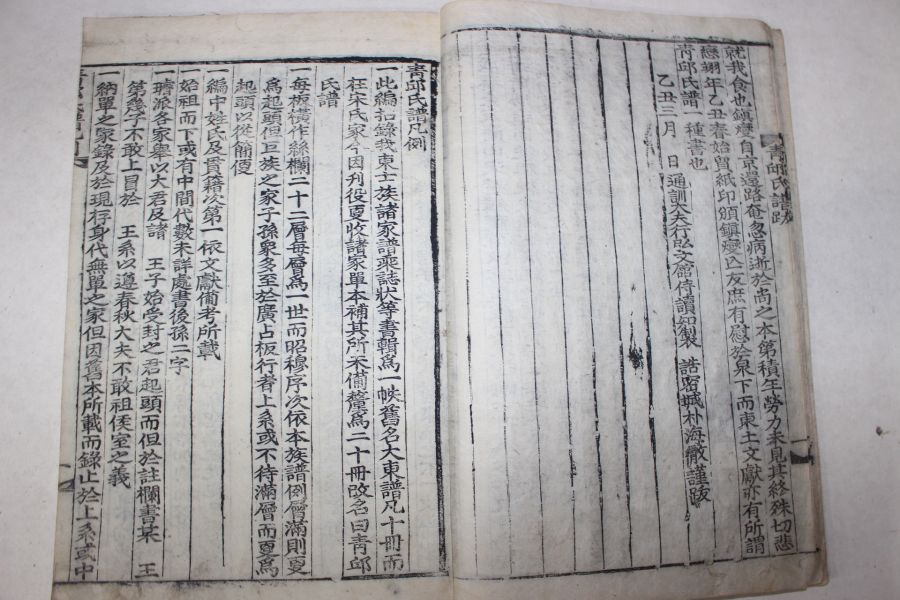 就我食也鎭燮自京還路奄忽病逝於尚之本第積年勞力未見其終殊切悲
戀翊年乙丑春始買紙印頒鎭燮亡友庶有慰於泉下而東土文獻亦有所謂
青邱氏譜一種書也
乙丑三月 日通訓大夫行弘文館侍讀知製 誥密城朴海徹謹跋
青邱氏譜跋
青邱氏譜凡例
一此編抄錄我東士族諸家譜乘誌狀等書輯爲一帙舊名大東譜凡十冊而
在某氏家今因刋役更收諸家單本補其所未備釐爲二十冊改名曰青邱
氏譜
一每板橫作絲欄二十二層每層爲一世而昭穆序次依本族譜例層滿則更
爲起頭但巨族之家子孫衆多至於廣占板行者上系或不待滿層而更爲
起頭以從簡便
一編中姓氏及貫籍次第一依文獻備考所載
一始祖而下或有中間代數未詳處書後孫二字
一璿派各家擧以大君及諸 王子始受封之君起頭而但於註欄書某 王
第幾子不敢上目於 王系以遵春秋大夫不敢祖侯室之義
一納單之家錄及於現存身代無單之家但因舊本所載而錄止於上系或中